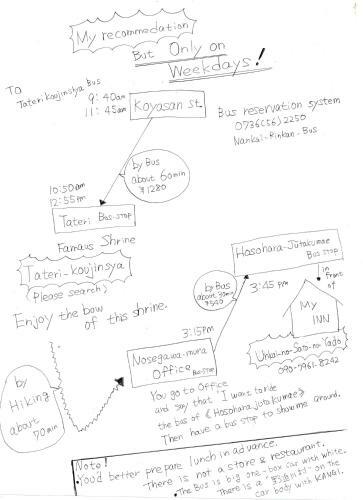 My recommedation
But Only on
Weekdays!
To
Taterikoujinsya Bus
9:40am
11:45am
Koyasan st.
Bus reservation system
0736(56)2250
Nankai-Rinkan-Bus
by Bus
about 60min
¥1280
10:50am
12:55pm
Tateri Bus-stop
Famaus Shrine
Tateri-koujinsya
(Please search)
Enjoy the bow
of this shrine.
Hosohara-Jutakumae
Bus stop
by Bus
about 30min
¥540
3:45pm
in
Front
of
MY
INN
Unkai-no-Sato-no Yado
090-7961-8242
3:15pm
Nosegawa-mura
Office Bus-stop
by
Hiking
about
70min
You go to Office
and say that "I want to ride
the bus of 《Hosoharajutakumae》
Then have a bus stop to show me around.
Note!
You'd better prepare lunch in advance.
There is not a store & restaurant.
The Bus is big one-box car with white.
There is a on the
car body with KANGI.